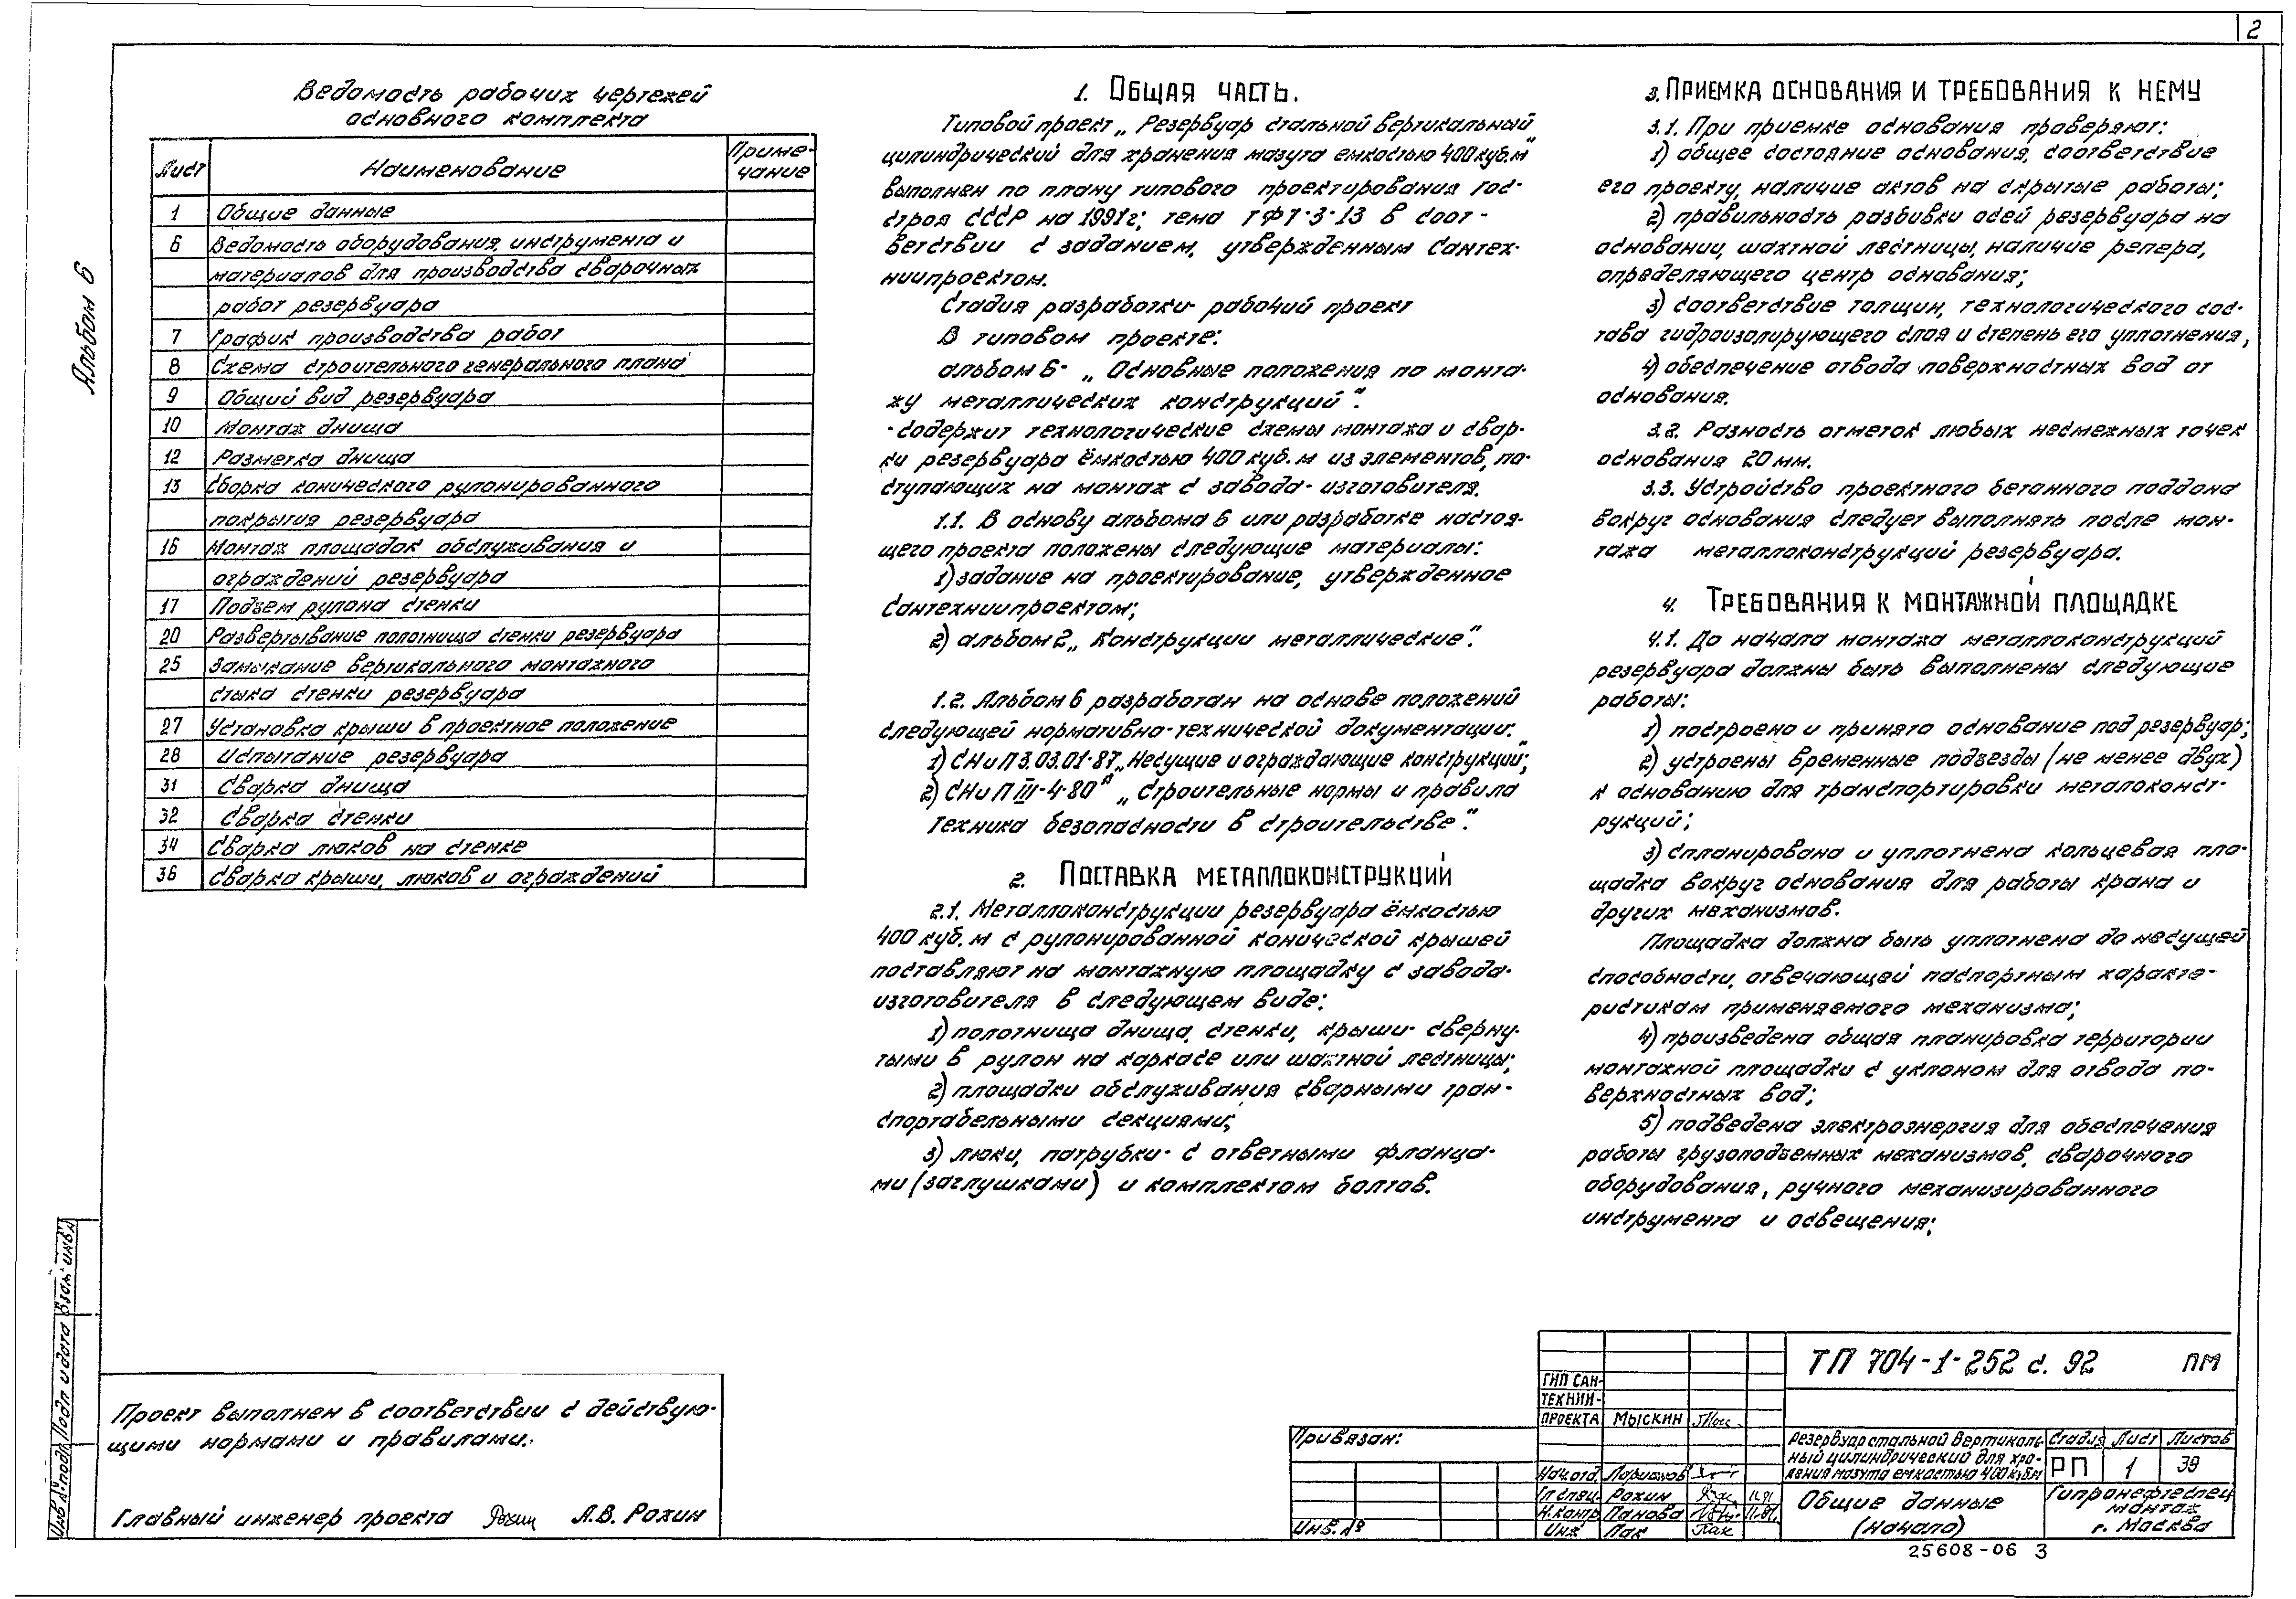 2
Альбом 6
Ведомость рабочих чертежей
основного комплекта
Лист Наименование Приме-
чание
1 Общие данные
6 Ведомость оборудования, инструмента и
материалов для производства сварочных
работ резервуара
7 График производства работ
8 Схема строительного генерального плана
9 Общий вид резервуара
10 Монтаж днища
12 Разметка днища
13 Сборка конического рулонированного
покрытия резервуара
16 Монтаж площадок обслуживания и
ограждений резервуара
17 Подъем рулона стенки
20 Развертывание полотнища стенки резервуара
25 Замыкание вертикального монтажного
стыка стенки резервуара
27 Установка крыши в проектное положение
28 Испытание резервуара
31 Сварка днища
32 Сварка стенки
34 Сварка люков на стенке
36 Сварка крыши, люков и ограждений
Проект выполнен в соответствии с действую-
щими нормами и правилами.
Главный инженер проекта Рохин А.В. Рохин
1. Общая часть.
Типовой проект „Резервуар стальной вертикальный
цилиндрический для хранения мазута емкостью 400 куб.м“
выполнен по плану типового проектирования Гос-
строя СССР на 1991г; тема ТФ7·3·13 в соот-
ветствии с заданием, утвержденным Сантех-
ниипроектом.
Стадия разработки- рабочий проект
В типовом проекте:
альбом 6- „Основные положения по монта-
жу металлических конструкций“.
-содержит технологические схемы монтажа и свар-
ки резервуара ёмкостью 400 куб. м из элементов, по-
ступающих на монтаж с завода- изготовителя.
1.1. В основу альбома 6 или разработке настоя-
щего проекта положены следующие материалы:
1) задание на проектирование, утвержденное
Сантехниипроектом;
2) альбом 2 „Конструкции металлические“.
1.2. Альбом 6 разработан на основе положений
следующей нормативно-технической документации:
1) СНиП 3.03.01-87 „Несущие и ограждающие конструкции“;
2) СНиП III-4-80А „Строительные нормы и правила
Техника безопасности в строительстве“.
2. Поставка металлоконструкций
2.1. Металлоконструкции резервуара ёмкостью
400 куб. м с рулонированной конической крышей
поставляют на монтажную площадку с завода-
изготовителя в следующем виде:
1) полотнища днища, стенки, крыши- сверну-
тыми в рулон на каркасе или шахтной лестницы;
2) площадки обслуживания сварными тран-
спортабельными секциями;
3) люки, патрубки- с ответными фланца-
ми (заглушками) и комплектом болтов.
3. Приемка основания и требования к нему
3.1. При приемке основания проверяют:
1) общее состояние основания, соответствие
его проекту, наличие актов на скрытые работы;
2) правильность разбивки осей резервуара на
основании, шахтной лестницы, наличие репера,
определяющего центр основания;
3) соответствие толщин, технологического сос-
тава гидроизолирующего слоя и степень его уплотнения,
4) обеспечение отвода поверхностных вод от
основания.
3.2. Разность отметок любых несмежных точек
основания 20 мм.
3.3. Устройство проектного бетонного поддона
вокруг основания следует выполнять после мон-
тажа металлоконструкций резервуара.
4. Требования к монтажной площадке
4.1. До начала монтажа металлоконструкций
резервуара должны быть выполнены следующие
работы:
1) построено и принято основание под резервуар;
2) устроены временные подъезды (не менее двух)
к основанию для транспортировки металоконст-
рукций;
3) спланирована и уплотнена кольцевая пло-
щадка вокруг основания для работы крана и
других механизмов.
Площадка должна быть уплотнена до несущей
способности, отвечающей паспортным характе-
ристикам применяемого механизма;
4) произведена общая планировка территории
монтажной площадки с уклоном для отвода по-
верхностных вод;
5) подведена электроэнергия для обеспечения
работы грузоподъемных механизмов, сварочного
оборудования, ручного механизированного
инструмента и освещения;
Инв.№ подл. Подп и дата Взам. инв.№
Привязан:
Инв. №
ГИП САН-
ТЕХНИИ-
ПРОЕКТА Мыскин
Нач отд. Ларионов
Гл спец. Рохин 11.91
Н.контр Панова 11.91
Инж Пак Пак
ТП 704-1-252 с. 92 ПМ
Резервуар стальной вертикаль-
ный цилиндрический для хра-
нения мазута емкостью 400 куб.м
Стадия Лист Листов
РП 1 39
Общие данные
(начало)
Гипронефтеспец
монтаж
г. Москва
25608-06 3